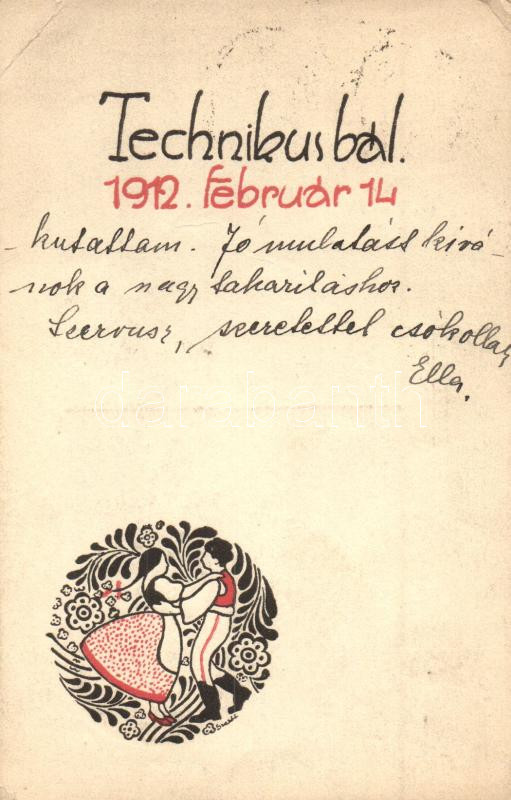 Technikus bál.
1912. Február 14
- kutattam. Jó mulatást kivá-
nok a nagy takaritáshoz.
Szervusz, szeretettel csókollak
Ella.
darabanth